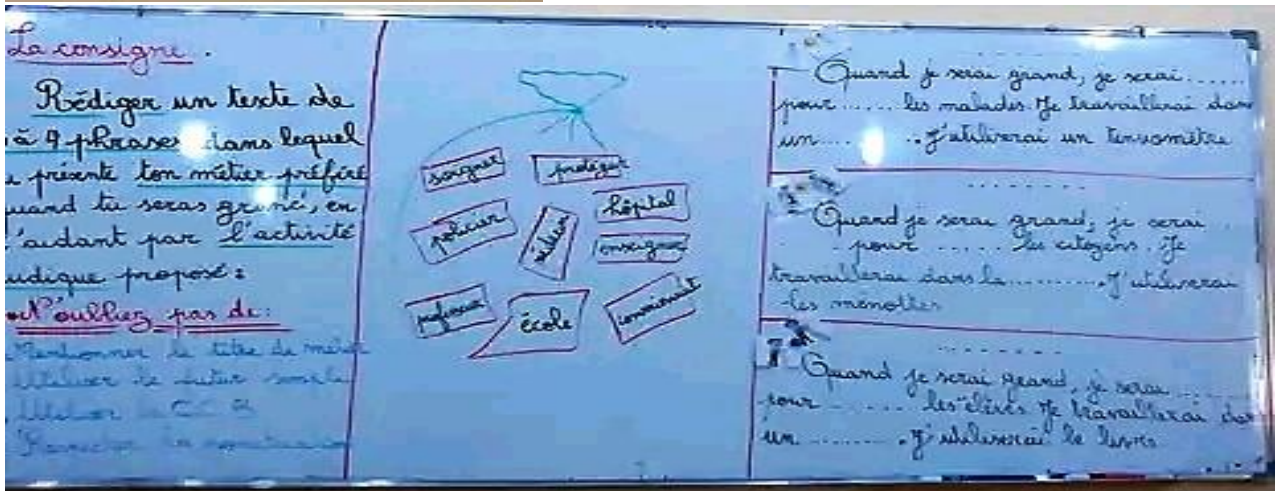 La consigne.
Rédiger un texte de
à 4 phrases dans lequel
présente ton métier préféré
quand tu seras grand, en
t'aidant par l'activité
ludique proposé :
N'oubliez pas de :
Mentionner le titre de métier
Utiliser le futur simple
Utiliser le CC
la ponctuation
soigner
protéger
hôpital
policier
médecin
enseigner
professeur
école
commissariat
Quand je serai grand, je serai......
pour ..... les malades. Je travaillerai dans
un.... . J'utiliserai un tensiomètre
Quand je serai grand, je serai
pour ...... les citoyens. Je
travaillerai dans le......... . J'utiliserai
les menottes
Quand je serai grand, je serai....
pour ...... les élèves. Je travaillerai dans
un ......... . J'utiliserai le livres